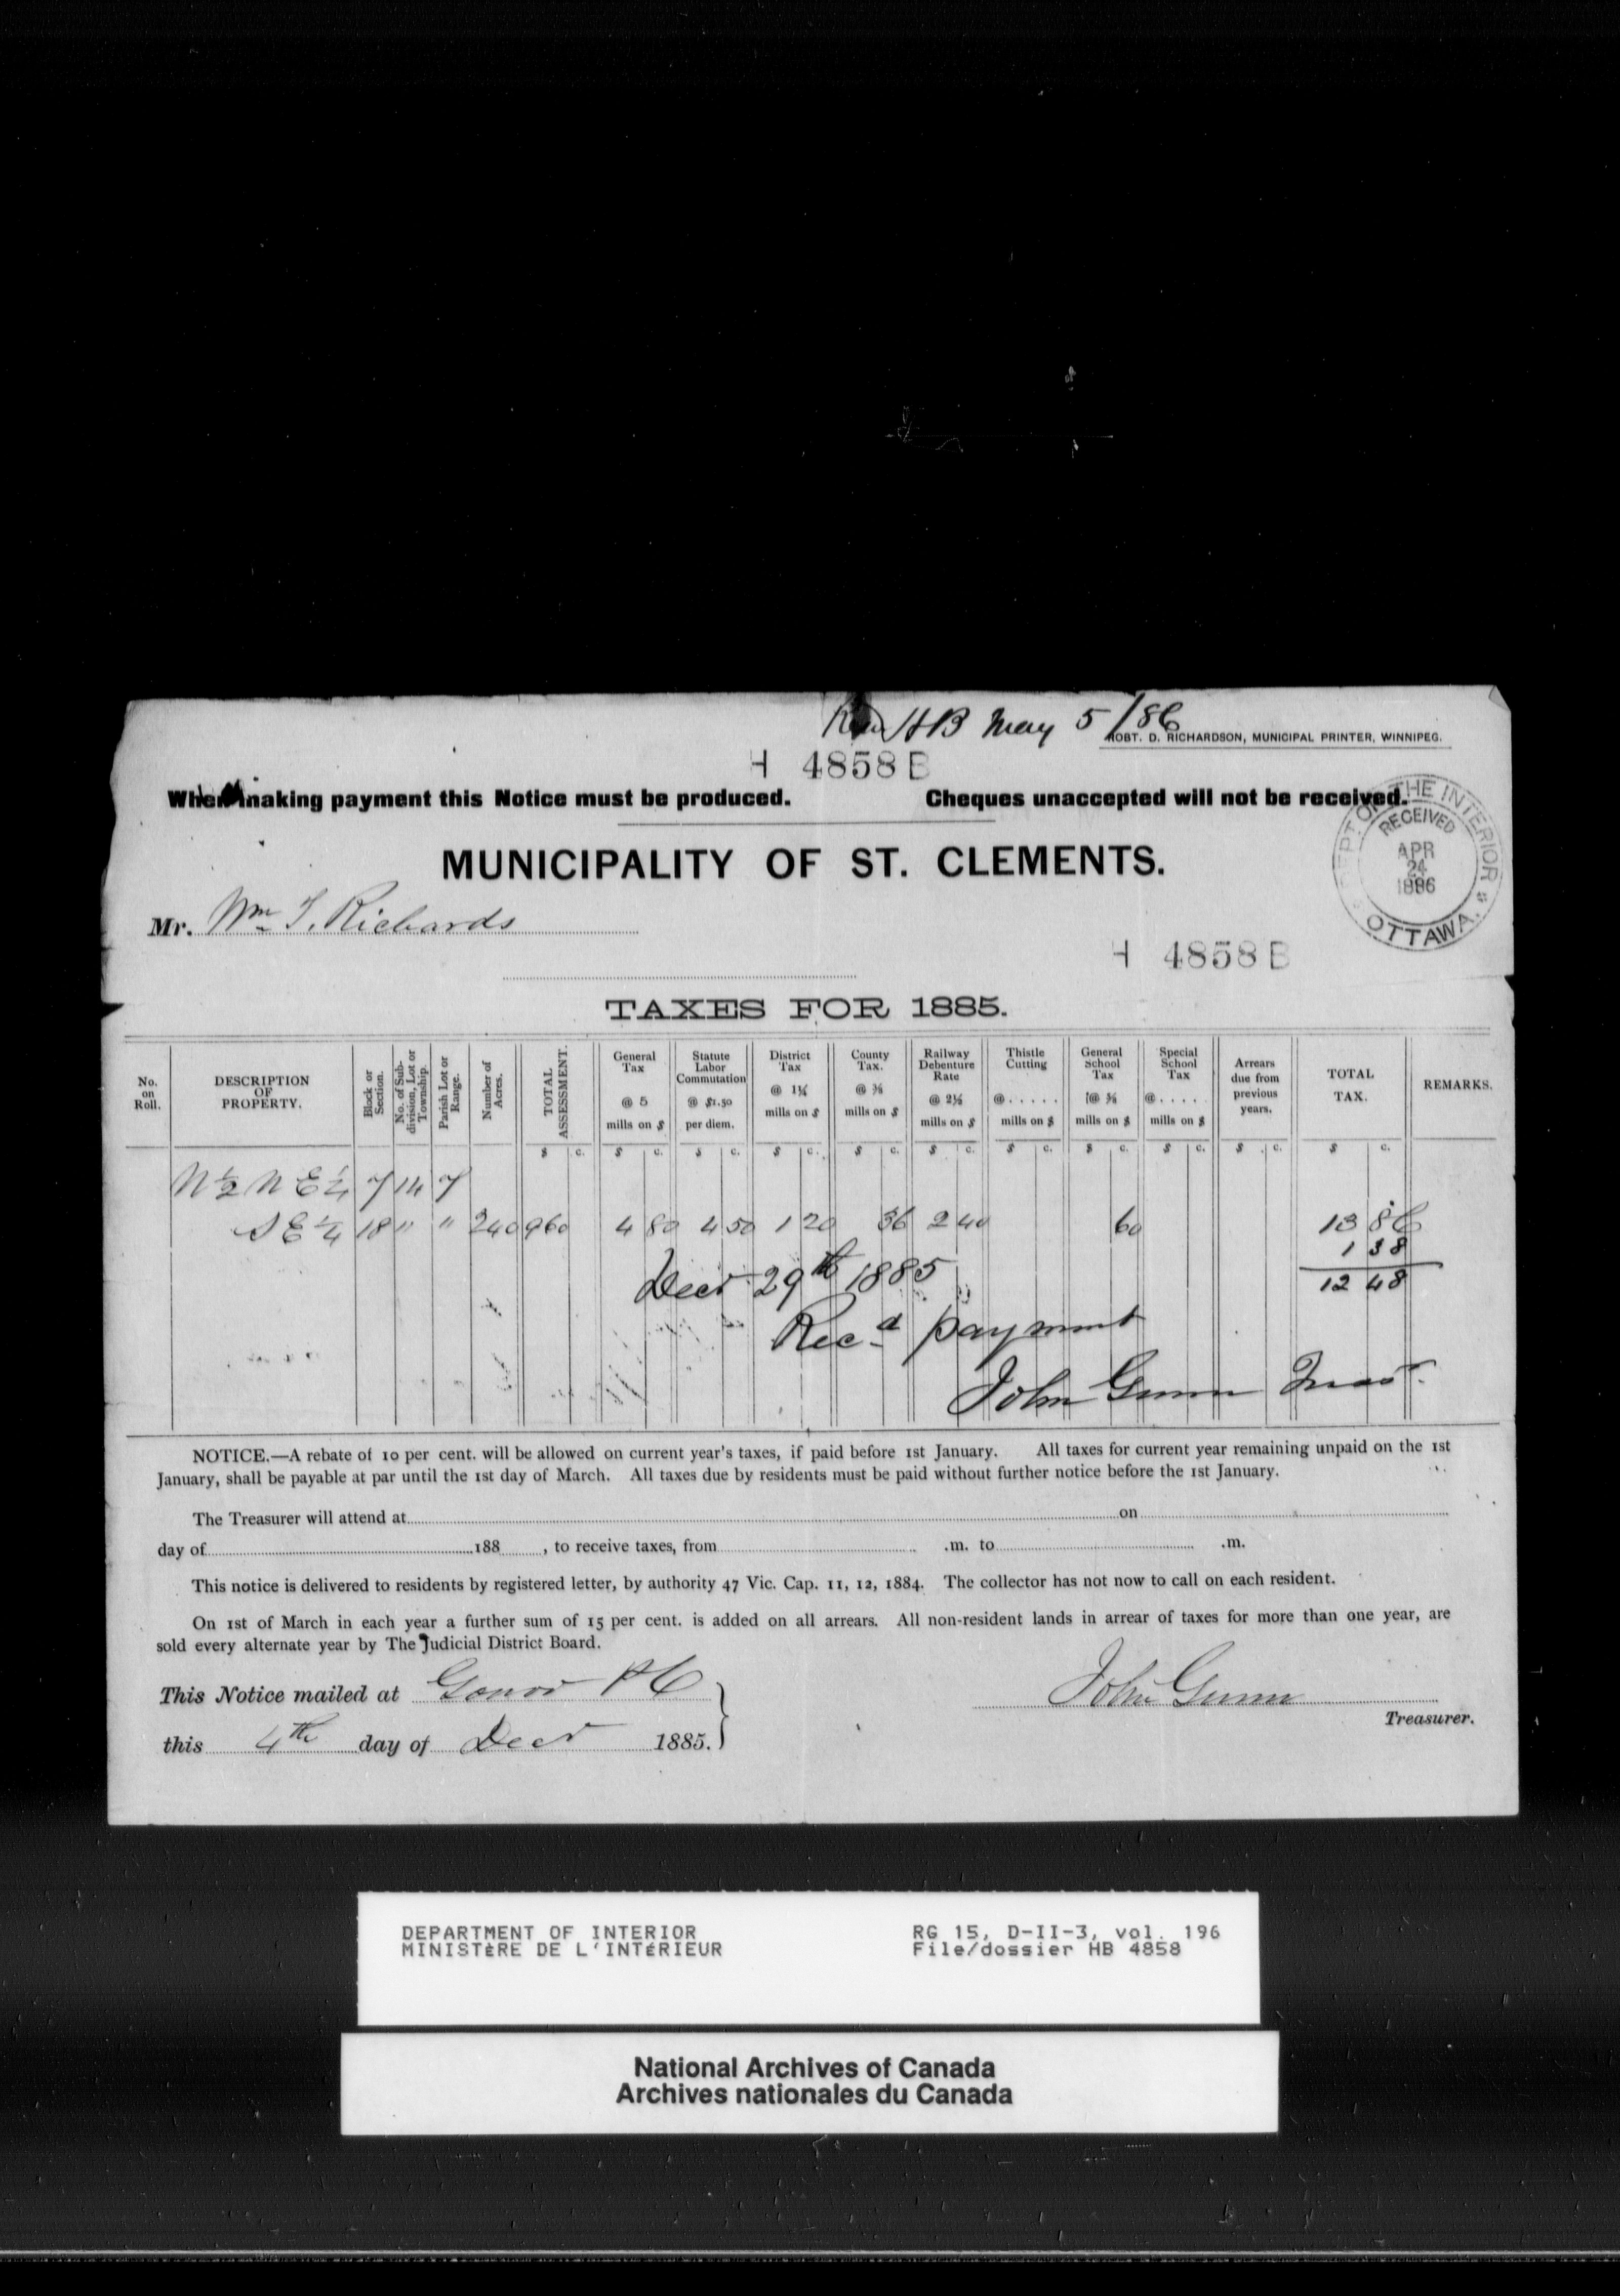 HB May 5/86
ROBT. D. RICHARDSON, MUNICIPAL PRINTER, WINNIPEG.
H 4858 B
When making payment this Notice must be produced. Cheques unaccepted will not be received.
DEPT. OF THE INTERIOR
RECEIVED
APR
24
1886
OTTAWA.
MUNICIPALITY OF ST. CLEMENTS.
Mr. Wm T. Richards
H 4858 B
TAXES FOR 1885.
No. on Roll. DESCRIPTION OF PROPERTY. Block or Section. No. of Sub-division, Lot or Township. Parish Lot or Range. Number of Acres. TOTAL ASSESSMENT. General Tax @ 5 mills on $ Statute Labor Commutation @ $1.50 per diem. District Tax @ 1¼ mills on $ County Tax. @ ⅜ mills on $ Railway Debenture Rate @ 2½ mills on $ Thistle Cutting @..... mills on $ General School Tax @ ⅝ mills on $ Special School Tax @..... mills on $ Arrears due from previous years. TOTAL TAX. REMARKS.
$ c. $ c. $ c. $ c. $ c. $ c. $ c. $ c. $ c. $ c. $ c.
N ½ N E ¼ 7 14 7
S E ¼ 18 " " 240 960 4 80 4 50 1 20 36 2 40 60 13 86
1 38
Decr 29th 1885 12 48
Recd payment
John Gunn Treasr.
NOTICE.—A rebate of 10 per cent. will be allowed on current year's taxes, if paid before 1st January. All taxes for current year remaining unpaid on the 1st
January, shall be payable at par until the 1st day of March. All taxes due by residents must be paid without further notice before the 1st January.
The Treasurer will attend at on
day of 188 , to receive taxes, from .m. to .m.
This notice is delivered to residents by registered letter, by authority 47 Vic. Cap. 11, 12, 1884. The collector has not now to call on each resident.
On 1st of March in each year a further sum of 15 per cent. is added on all arrears. All non-resident lands in arrear of taxes for more than one year, are
sold every alternate year by The Judicial District Board.
This Notice mailed at Gonor P O
John Gunn
Treasurer.
this 4th day of Decr 1885.
DEPARTMENT OF INTERIOR RG 15, D-II-3, vol. 196
MINISTÈRE DE L'INTÉRIEUR File/dossier HB 4858
National Archives of Canada
Archives nationales du Canada